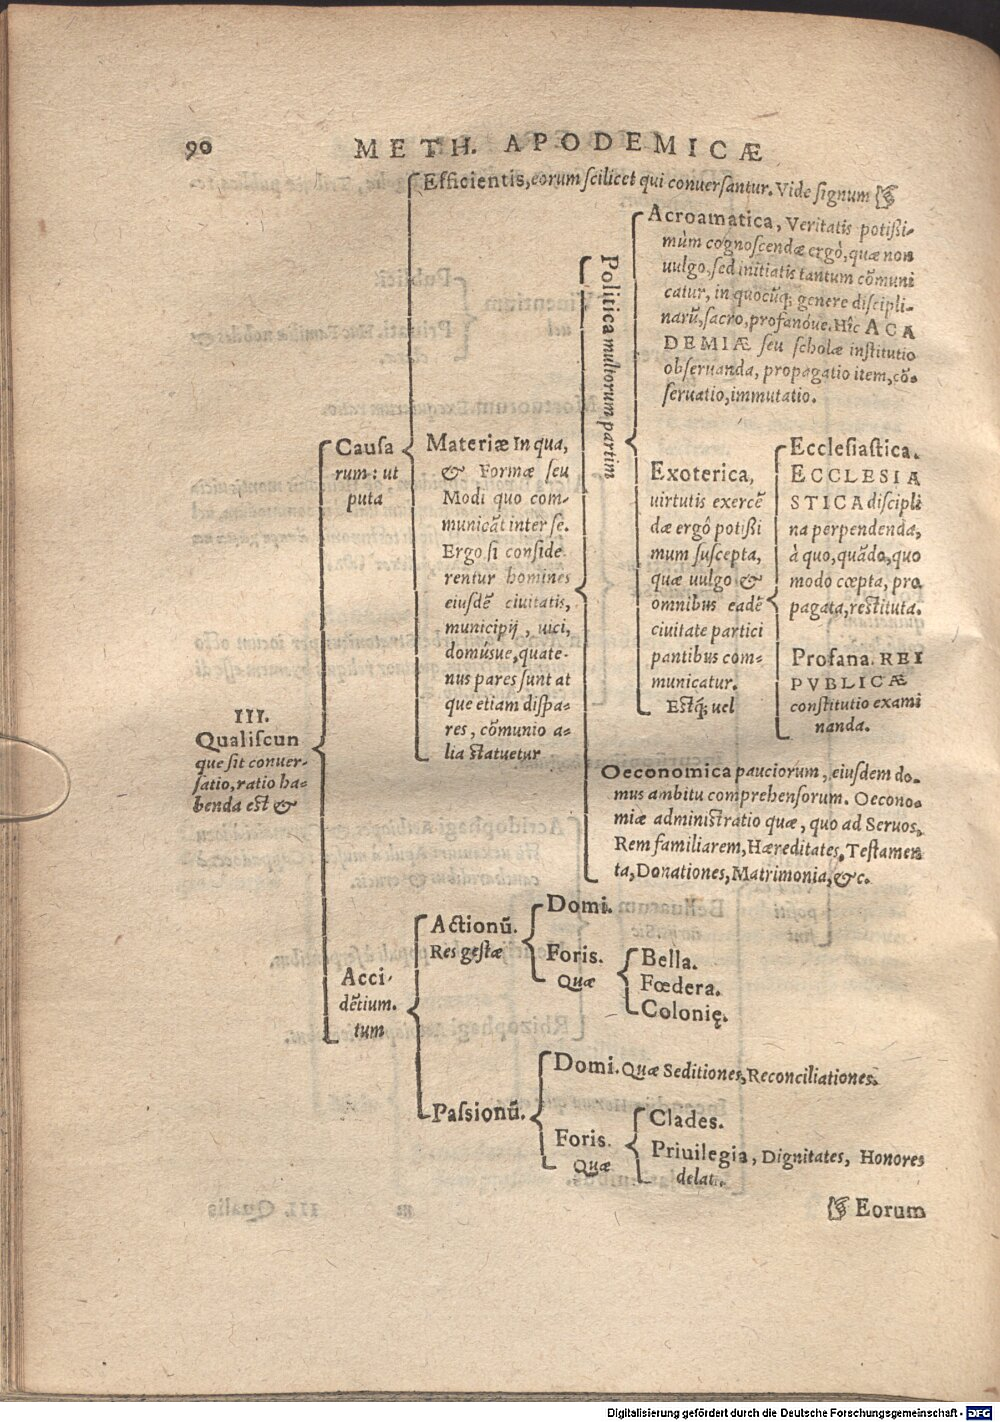 90
METH. APODEMICÆ
III.
Qualiſcun
que ſit conuer-
ſatio, ratio ha-
benda eſt &
Cauſa
rum: ut
puta
Efficientis, eorum ſcilicet qui conuerſantur. Vide ſignum ☞
Materiæ In qua,
& Formæ ſeu
Modi quo com-
municāt inter ſe.
Ergo ſi conſide
rentur homines
eiuſdē ciuitatis,
municipij, uici,
domúsue, quate-
nus pares ſunt at
que etiam diſpa-
res, cōmunio a-
lia ſtatuetur
Politica multorum partim
Acroamatica, Veritatis potißi-
mùm cognoſcendæ ergò, quæ non
uulgo, ſed initiatis tantum cōmuni
catur, in quocūq; genere diſcipli-
narū, ſacro, profanóue. Hîc ACA
DEMIÆ ſeu ſcholæ inſtitutio
obſeruanda, propagatio item, cō-
ſeruatio, immutatio.
Exoterica,
uirtutis exercē
dæ ergô potißi
mum ſuſcepta,
quæ uulgo &
omnibus eadē
ciuitate partici
pantibus com-
municatur.
Eſtq́; uel
Eccleſiaſtica.
ECCLESIA
STICA diſcipli
na perpendenda,
à quo, quādo, quo
modo cœpta, pro
pagata, reſtituta.
Profana. REI
PVBLICÆ
conſtitutio exami
nanda.
Oeconomica pauciorum, eiuſdem do-
mus ambitu comprehenſorum. Oecono-
miæ adminiſtratio quæ, quo ad Seruos,
Rem familiarem, Hæreditates, Teſtamen
ta, Donationes, Matrimonia, &c.
Acci-
dētium.
tum
Actionū.
Res geſtæ
Domi.
Foris.
Quæ
Bella.
Fœdera.
Colonię.
Paſsionū.
Domi. Quæ Seditiones, Reconciliationes.
Foris.
Quæ
Clades.
Priuilegia, Dignitates, Honores
delati.
☞ Eorum
Digitalisierung gefördert durch die Deutsche Forschungsgemeinschaft - DFG